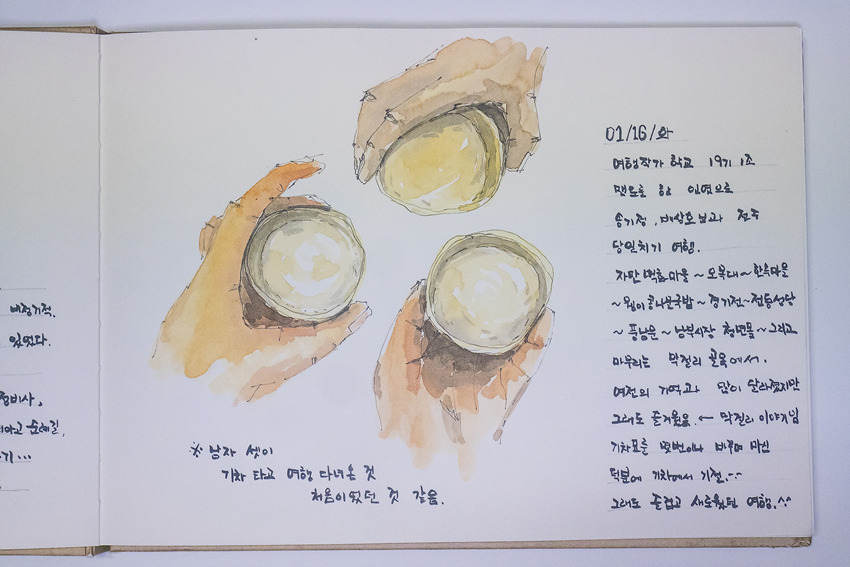 배정기적.
있었다.
정비사,
순례길,
※ 남자 셋이
기차 타고 여행 다녀온 것
처음이었던 것 같음.
01/16/화
여행작가 학교 19기 1조
멘토를 한 인연으로
송기정, 배상호님과 전주
당일치기 여행.
자만벽화마을~오목대~한옥마을
~웽이콩나물국밥~경기전~전동성당
~풍남문~남부시장 청년몰~그리고
마무리는 막걸리 골목에서.
예전의 기억과 많이 달라졌지만
그래도 즐거웠음. ← 막걸리 이야기임
기차표를 몇번이나 바꾸며 마신
덕분에 기차에서 기절.-.-
그래도 즐겁고 새로웠던 여행.^^